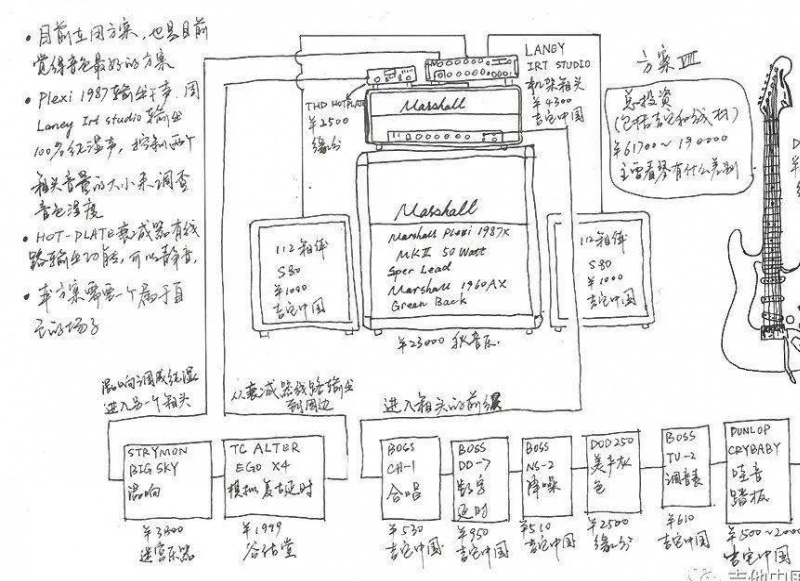 • 目前在用方案，也是目前
觉得音色最好的方案
• Plexi 1987输出干声，用
Laney Irt studio输出
100%纯湿声，控制两个
箱头音量的大小来调查
音色湿度
• HOT-PLATE衰减器有线
路输出功能，可以静音，
• 本方案需要一个属于自
己的场子
THD HOTPLATE
¥2500
缘分
LANEY
IRT STUDIO
机架箱头
¥4300
吉它中国
Marshall
Marshall
Marshall Plexi 1987X
MKII 50 Watt
Sper Lead
Marshall 1960AX
Green Back
¥23000
112箱体
S80
¥1000
吉它中国
112箱体
S80
¥1000
吉它中国
方案VIII
总投资
(包括吉它和线材)
¥61700~190000
主要看琴有什么差别
混响调成纯湿
进入另一个箱头
从衰减器线路输出
到周边
进入箱头的前级
STRYMON
BIG SKY
混响
¥3800
迷宫乐器
TC ALTER
EGO X4
模拟复古延时
¥1999
BOSS
CH-1
合唱
¥530
吉它中国
BOSS
DD-7
数字
延时
¥950
吉它中国
BOSS
NS-2
降噪
¥510
吉它中国
DOD 250
美产灰
色
¥2500
缘分
BOSS
TU-2
调音表
¥610
吉它中国
DUNLOP
CRYBABY
哇音
踏板
¥500~2000
吉它中国
吉他中国